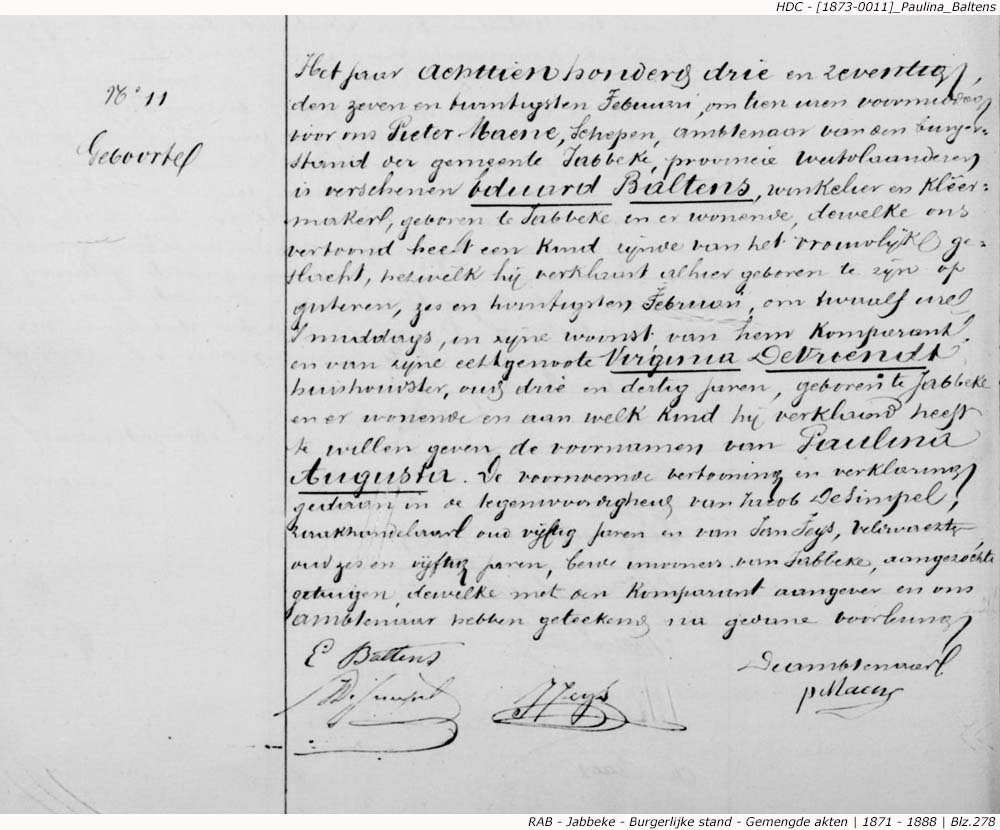 HDC - [1873-0011]_Paulina_Baltens
N° 11
Geboorte
Het jaar achttien honderd drie en zeventig,
den zeven en twintigsten Februari, om tien uren voormiddag
voor ons Pieter Maene, Schepen, ambtenaar van den burger-
stand der gemeente Jabbeke, provincie Westvlaanderen
is verschenen Eduard Baltens, winkelier en kleer-
maker, geboren te Jabbeke en er wonende, dewelke ons
vertoond heeft een kind zijnde van het vrouwlijk ge-
slacht, hetwelk hij verklaart alhier geboren te zijn op
gisteren, zes en twintigsten Februari, om twaalf ure
smiddags, in zijne woonst van hem Komparant,
en van zijne echtgenoote Virginia DeVriendt,
huishoudster, oud drie en dertig jaren, geboren te Jabbeke
en er wonende en aan welk kind hij verklaard heeft
te willen geven de voornamen van Paulina
Augusta. De voornoemde vertooning en verklaring
gedaan in de tegenwoordigheid van Jacob DeSimpel,
zaakhandelaar oud vijftig jaren en van Jan Seys, Veldwachter,
oud zes en vijftig jaren, beide inwoners van Jabbeke, aangezochte
getuigen, dewelke met den Komparant aangever en ons
ambtenaar hebben geteekend na gedane voorlezing
E Baltens
De ambtenaar
DeSimpel
J Seys
p Maene
RAB - Jabbeke - Burgerlijke stand - Gemengde akten | 1871 - 1888 | Blz.278